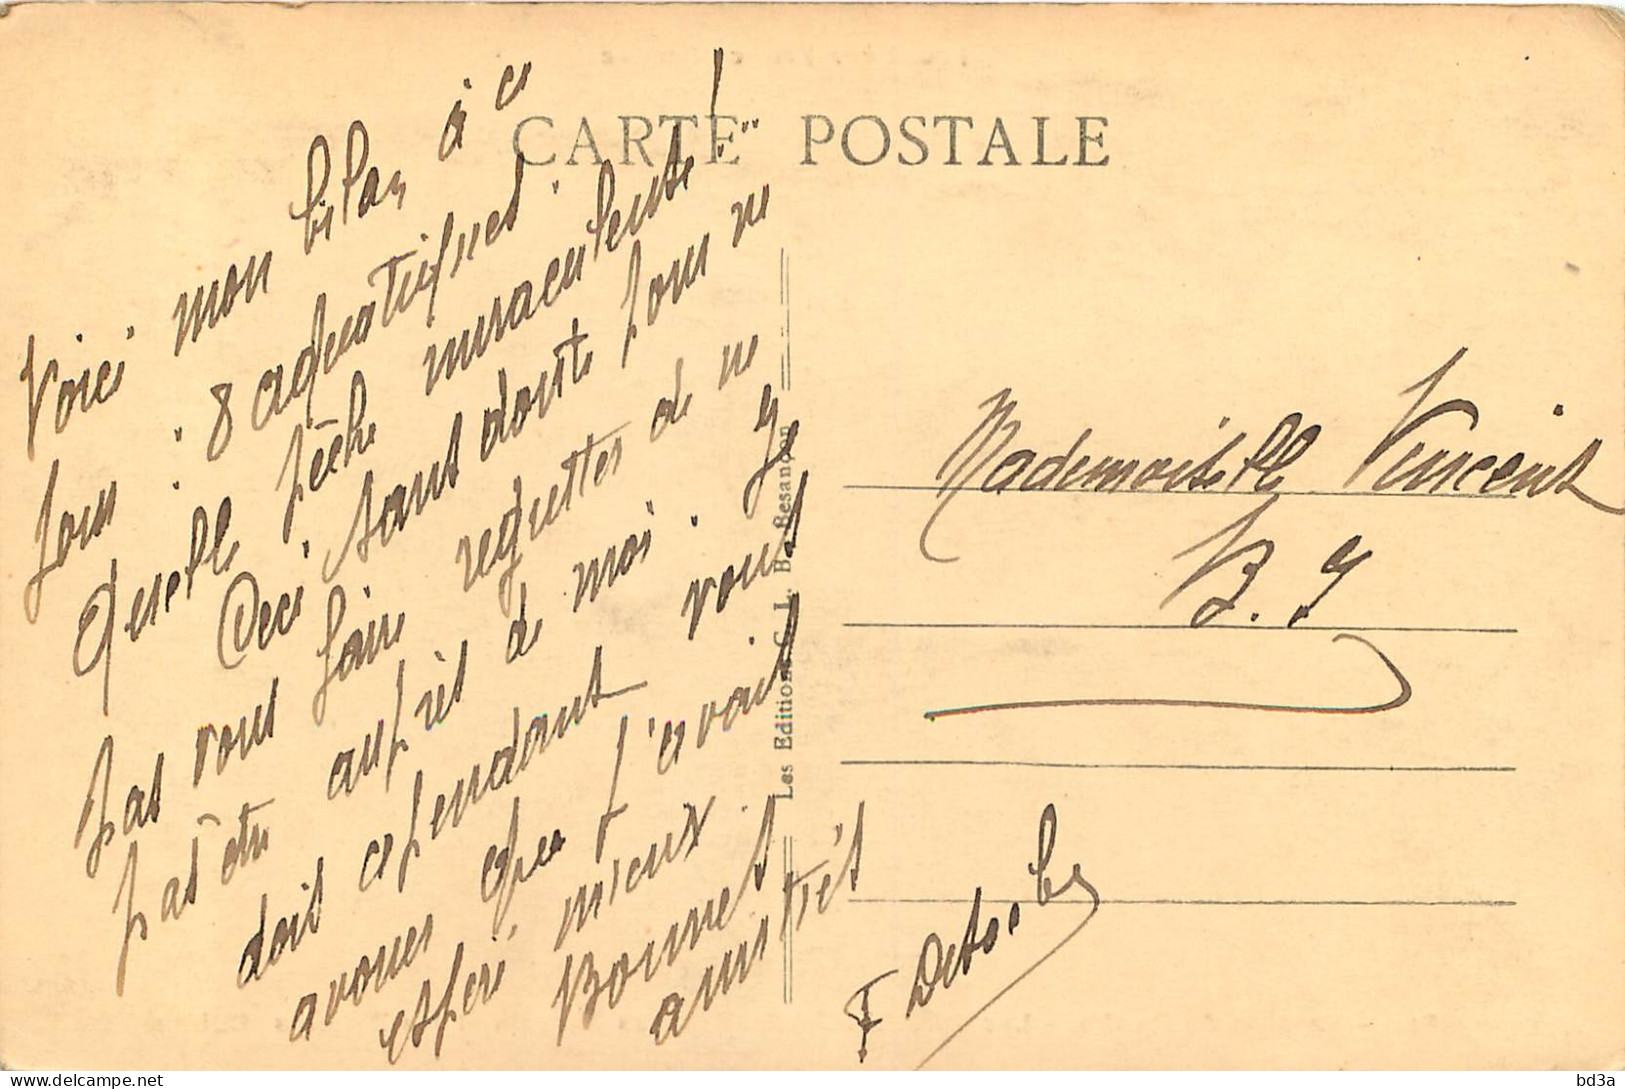 CARTE POSTALE
Voici mon bilan à ce
jour : 8 aquatiques.
Quelle pêche miraculeuse!..."
Ceci sans doute pour ne
pas vous faire regretter de ne
pas être auprès de moi. Je
dois cependant vous
avouer que j'avais
espéré mieux
Bonnes
amitiés
F
Les Editions C. L. B. Besançon
Mademoiselle Vincent
B. 9
bd3a